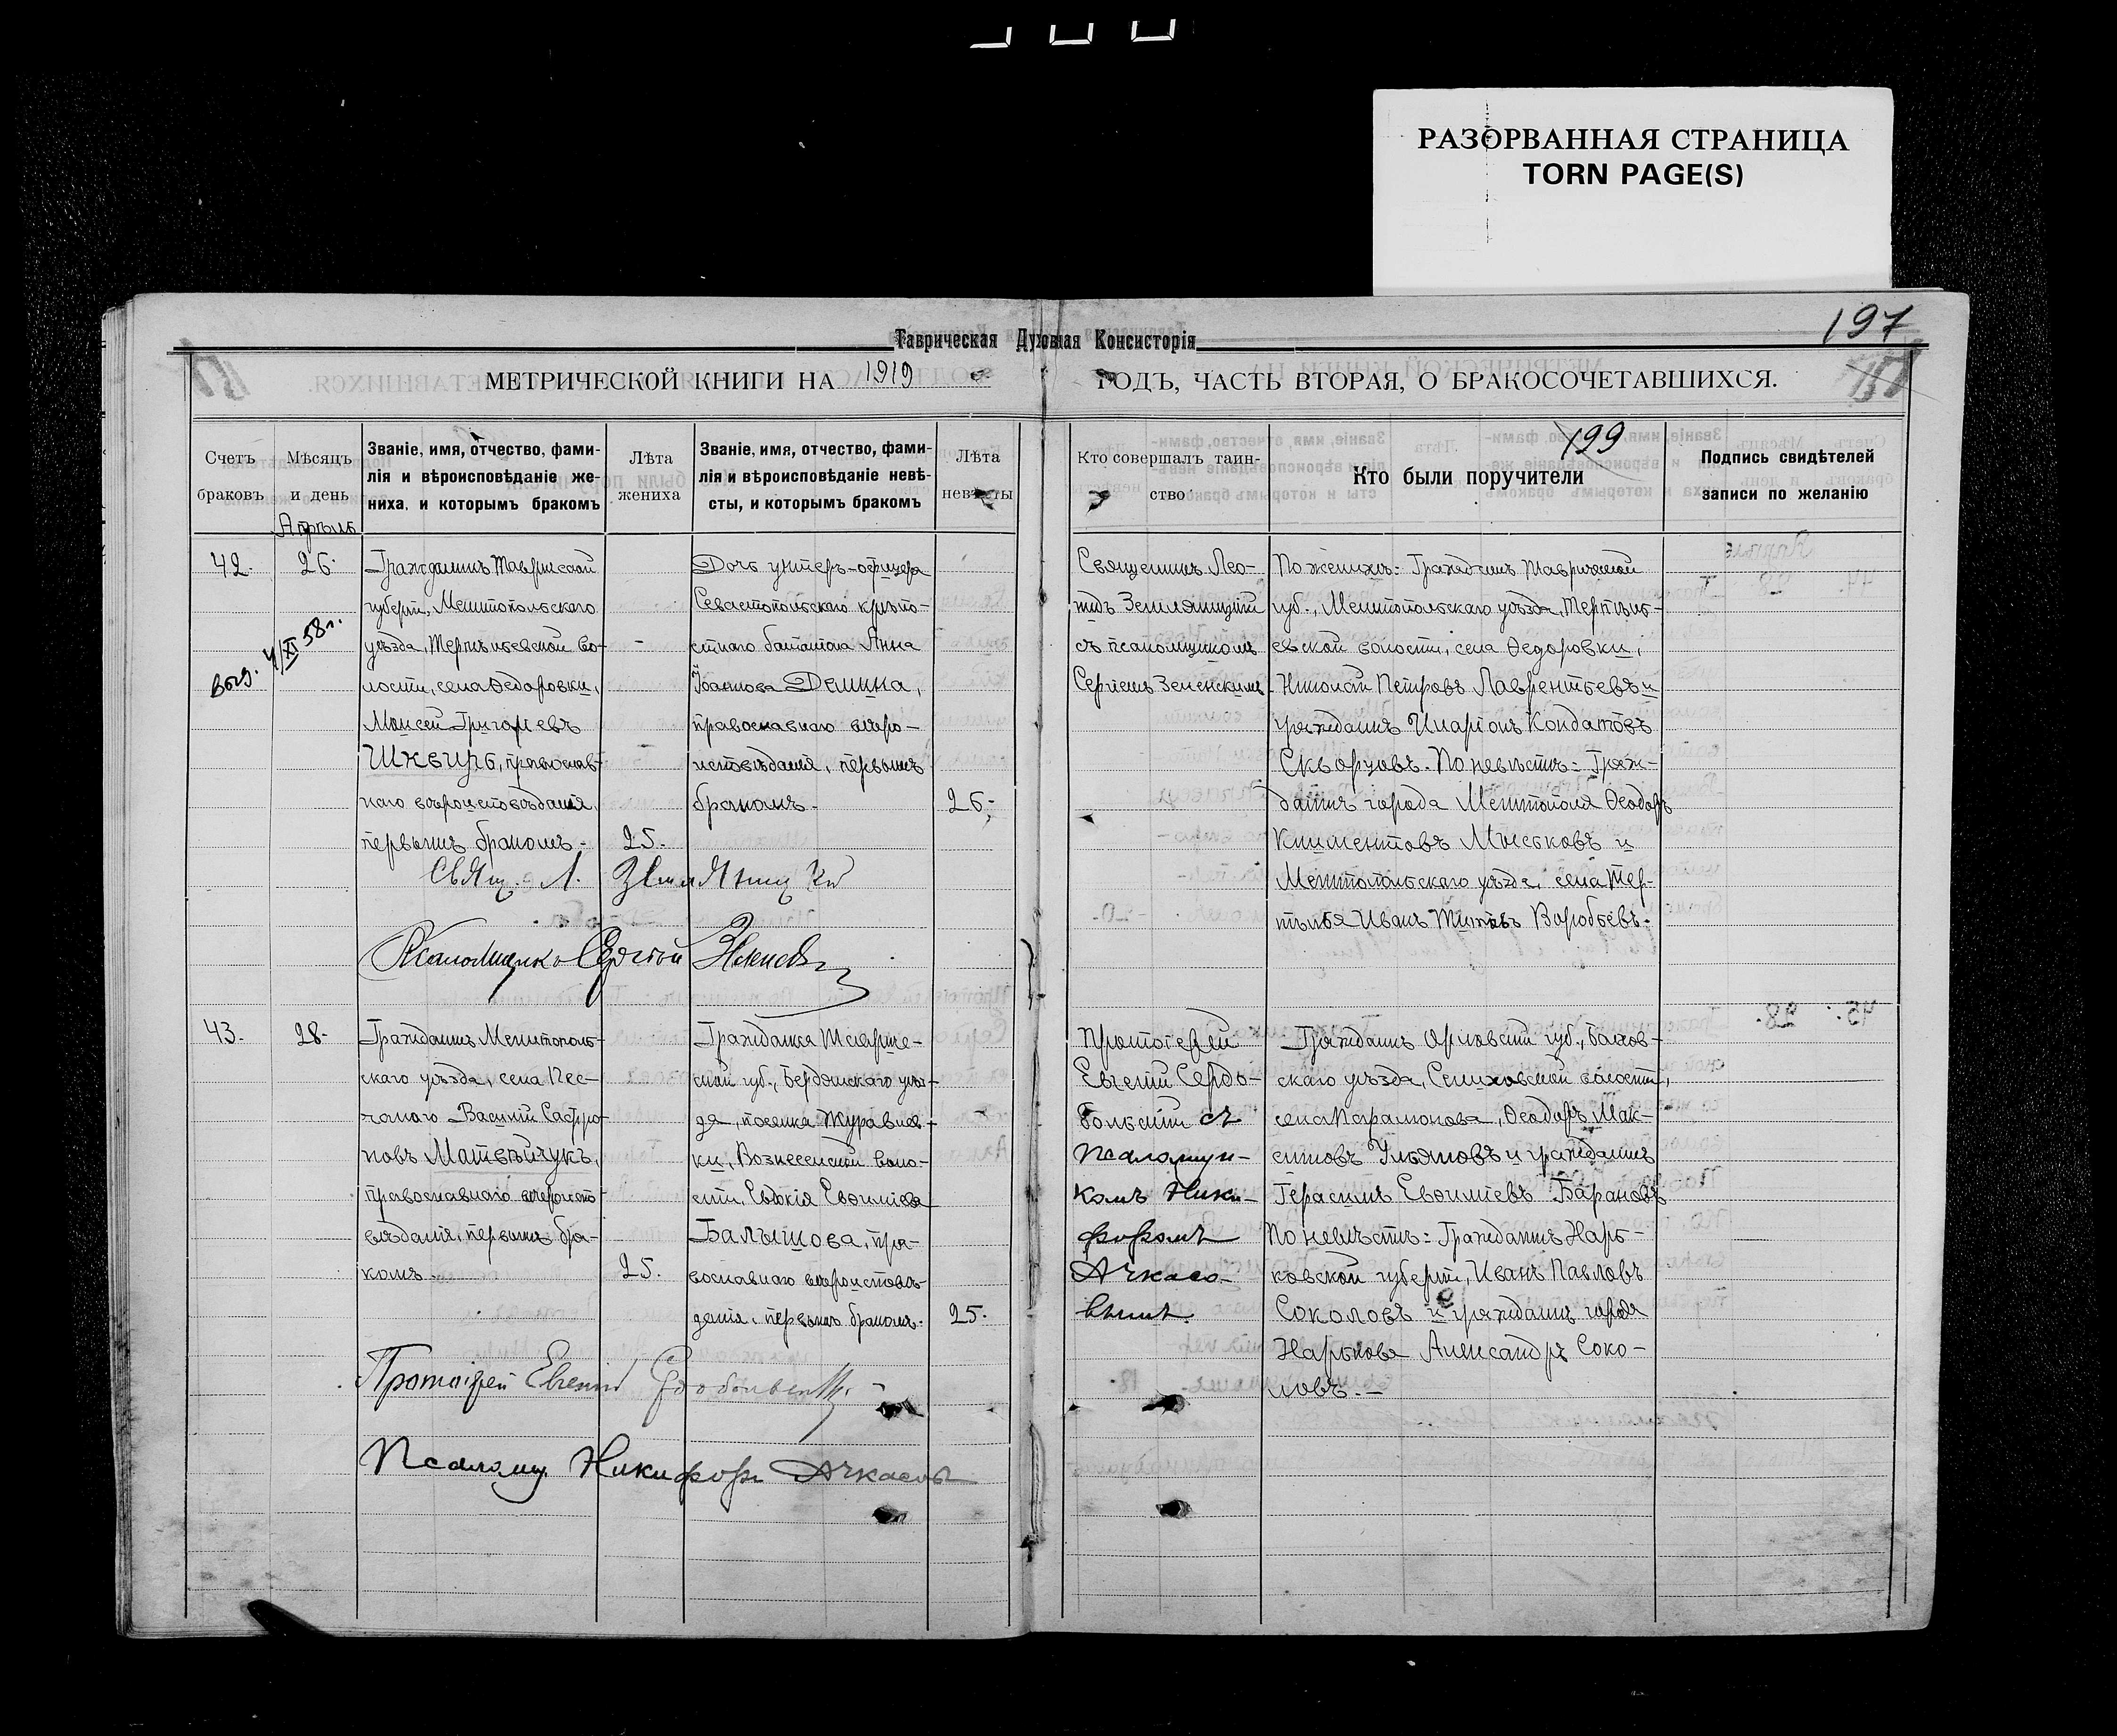 РАЗОРВАННАЯ СТРАНИЦА
TORN PAGE(S)
197
Таврическая Духовная Консисторія
МЕТРИЧЕСКОЙ КНИГИ НА 1919 ГОДЪ, ЧАСТЬ ВТОРАЯ, О БРАКОСОЧЕТАВШИХСЯ.
199
Счетъ
браковъ
Мѣсяцъ
и день
Званіе, имя, отчество, фами-
лія и вѣроисповѣданіе же-
ниха, и которымъ бракомъ
Лѣта
жениха
Званіе, имя, отчество, фами-
лія и вѣроисповѣданіе невѣ-
сты, и которымъ бракомъ
Лѣта
невѣсты
Кто совершалъ таин-
ство
Кто были поручители
Подпись свидѣтелей
записи по желанію
Апрѣль
42.
26.
выд. 4/XI 58 г.
Гражданинъ Таврической
губерніи, Мелитопольскаго
уѣзда, Терпѣньевской во-
лости, села Ѳедоровки,
Моисей Григорьевъ
Шквиръ, православ-
наго вѣроисповѣданія,
первымъ бракомъ.
25.
Дочь унтеръ-офицера
Севастопольскаго крѣпо-
стнаго баталіона Анна
Іоаннова Демина,
православнаго вѣро-
исповѣданія, первымъ
бракомъ.
26.
Священникъ Лео-
нидъ Земляницкій
съ псаломщикомъ
Сергіемъ Зеленскимъ
По женихѣ: Гражданинъ Таврической
губ., Мелитопольскаго уѣзда, Терпѣнь-
евской волости, села Ѳедоровки,
Николай Петровъ Лаврентьевъ и
гражданинъ Иларіонъ Кондатовъ
Скворцовъ. По невѣстѣ: Граж-
данинъ города Мелитополя Ѳеодоръ
Климентовъ Мыськовъ и
Мелитопольскаго уѣзда, села Тер-
пѣнья Иванъ Титовъ Воробьевъ.
Свящ. Л. Земляницкій
Псаломщикъ Сергій Зеленскій
43.
28.
Гражданинъ Мелитополь-
скаго уѣзда, села Пес-
чанаго Василій Сафро-
новъ Матвѣйчукъ,
православнаго вѣроиспо-
вѣданія, первымъ бра-
комъ.
25.
Гражданка Тавриче-
ской губ., Бердянскаго уѣз-
да, поселка Журавлев-
ки, Вознесенской воло-
сти, Евдокія Евѳиміева
Балышова, пра-
вославнаго вѣроисповѣ-
данія, первымъ бракомъ.
25.
Протоіерей
Евгеній Сердо-
больскій съ
псаломщи-
комъ Ники-
форомъ
Ачкасо-
вымъ
Гражданинъ Орловской губ., Болхов-
скаго уѣзда, Селиховской волости,
села Парамонова, Ѳеодоръ Мак-
симовъ Ульяновъ и гражданинъ
Герасимъ Евѳиміевъ Барановъ
По невѣстѣ: Гражданинъ Харь-
ковской губерніи, Иванъ Павловъ
Соколовъ и гражданинъ города
Харькова Александръ Соко-
ловъ.
Протоіерей Евгеній Сердобольскій
Псаломщ. Никифоръ Ачкасовъ